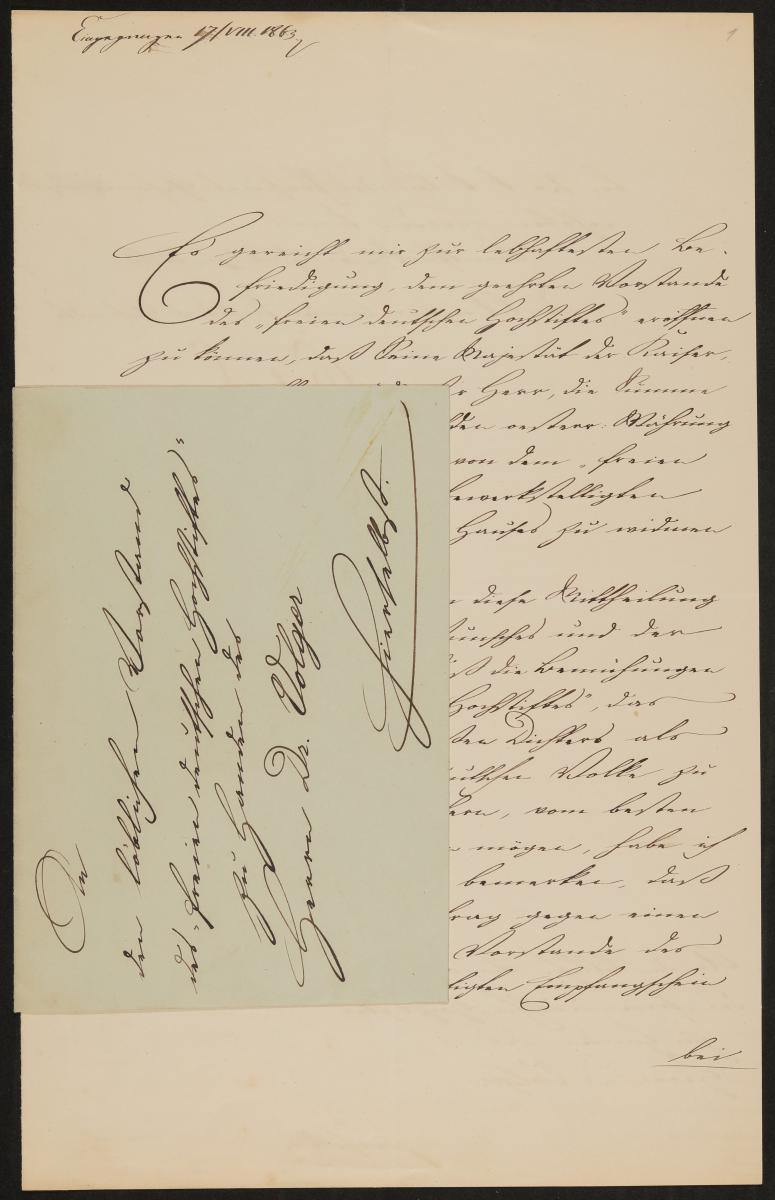 Eingegangen 17/VIII. 1863.
1
Es gereicht mir zur lebhaftesten Be-
friedigung, dem geehrten Vorstande
des „freien deutschen Hochstiftes" eröffnen
zu können, daß Seine Majestät der Kaiser,
Herr, die Summe
den oesterr: Währung
von dem „freien
bewerkstelligten
Hauses zu widmen
diese Mittheilung
unsches und der
ß die Bemühungen
Hochstiftes", das
ten Dichters als
utschen Volke zu
ern, vom besten
mögen, habe ich
bemerken, daß
rag gegen einen
Vorstande des
ligten Empfangschein
bei
An
den löblichen Vorstand
des „freien deutschen Hochstiftes"
zu Handen des
Herrn Dr. Volger
Hierselbst.